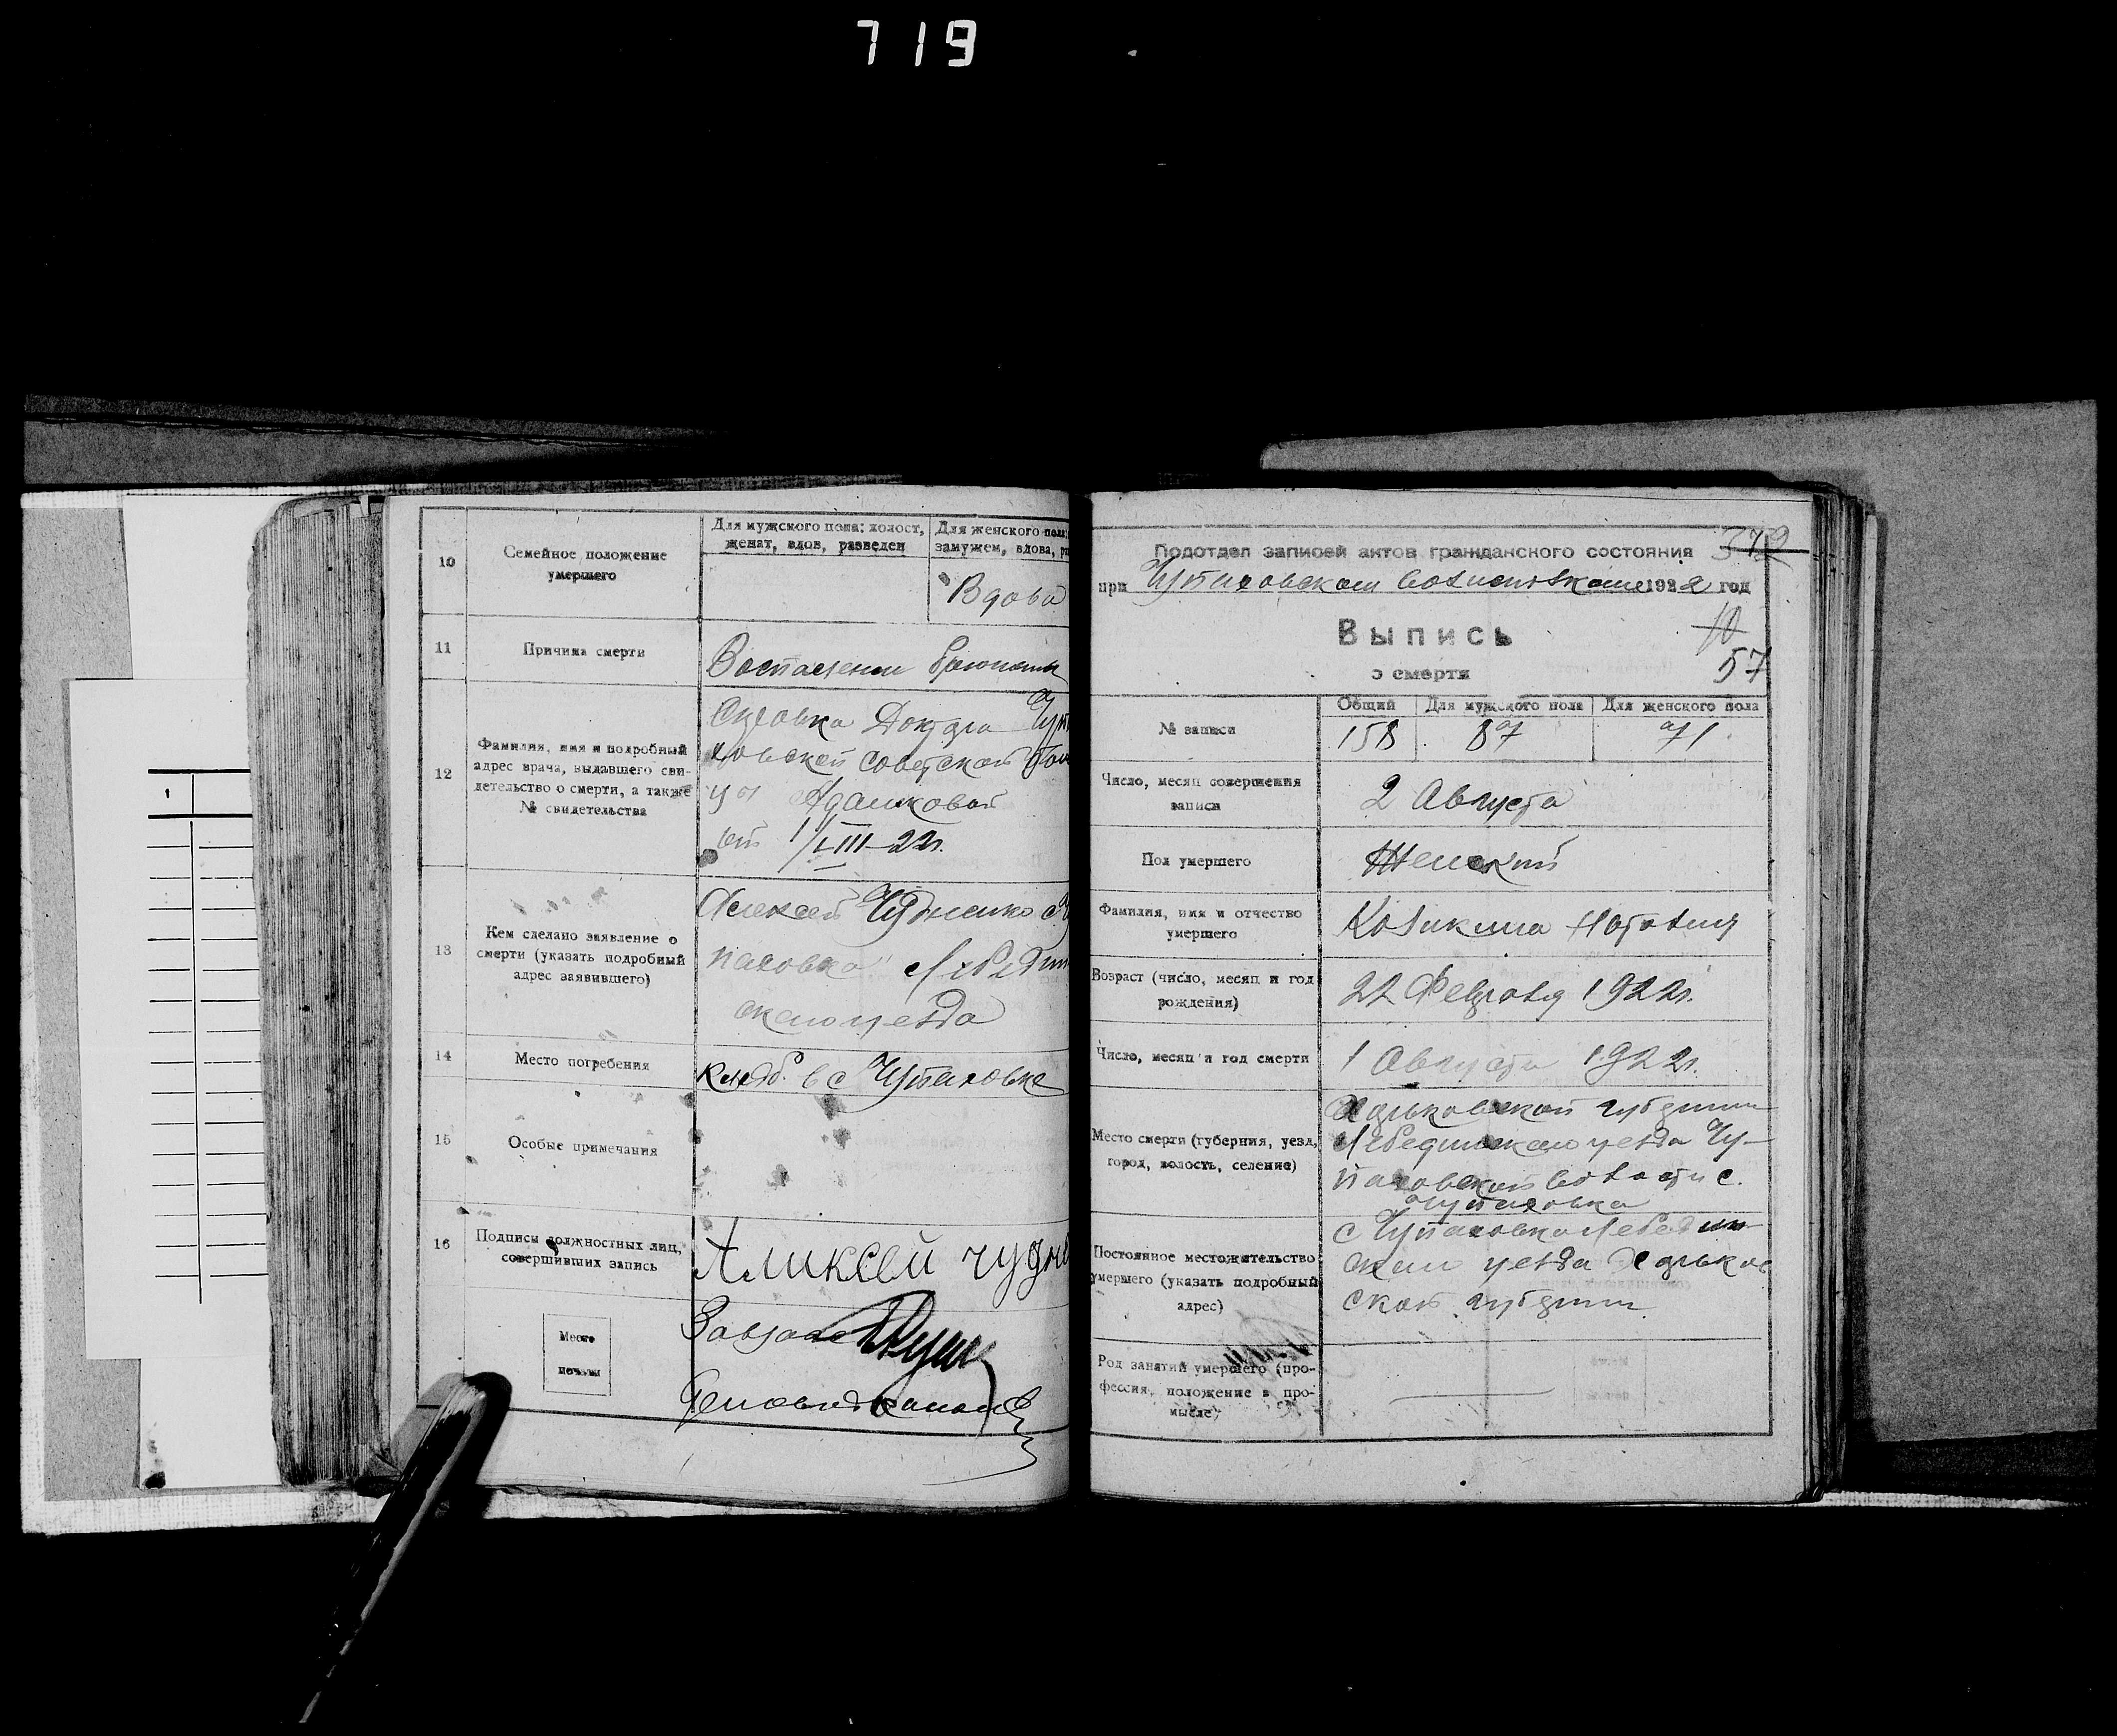 719
10
Семейное положение
умершего
Для мужского пола: холост,
женат, вдов, разведен
Для женского пола:
замужем, вдова, ра
Вдова
11
Причина смерти
Воспаление брюшины
12
Фамилия, имя и подробный
адрес врача, выдавшего сви-
детельство о смерти, а также
№ свидетельства
Справка Доктора Чуп
ховской советской
Адамковой
от 1/VIII-22г.
13
Кем сделано заявление о
смерти (указать подробный
адрес заявившего)
Алексей Чудненко с Чу
паховка Лебедин
ского уезда
14
Место погребения
Кладб. в с Чупаховке
15
Особые примечания
16
Подписи должностных лиц,
совершивших запись
Аликсей чудне
Место
печати
Завзагс
Деловод
Подотдел записей актов гражданского состояния
372
при Чупаховском волисполкоме 1922 год
Выпись
о смерти
10
57
№ записи
Общий
Для мужского пола
Для женского пола
158
87
71
Число, месяц совершения
записи
2 Августа
Пол умершего
Женский
Фамилия, имя и отчество
умершего
Наталия
Возраст (число, месяц и год
рождения)
22 Февраля 1922г.
Число, месяц и год смерти
1 Августа 1922г.
Место смерти (губерния, уезд,
город, волость, селение)
Харьковской губернии
Лебединского уезда Чу-
паховской волости с.
Чупаховка
Постоянное местожительство
умершего (указать подробный
адрес)
с Чупаховка Лебедин-
ского уезда Харьков
ской губернии
Род занятий умершего (про-
фессия, положение в про-
мысле)